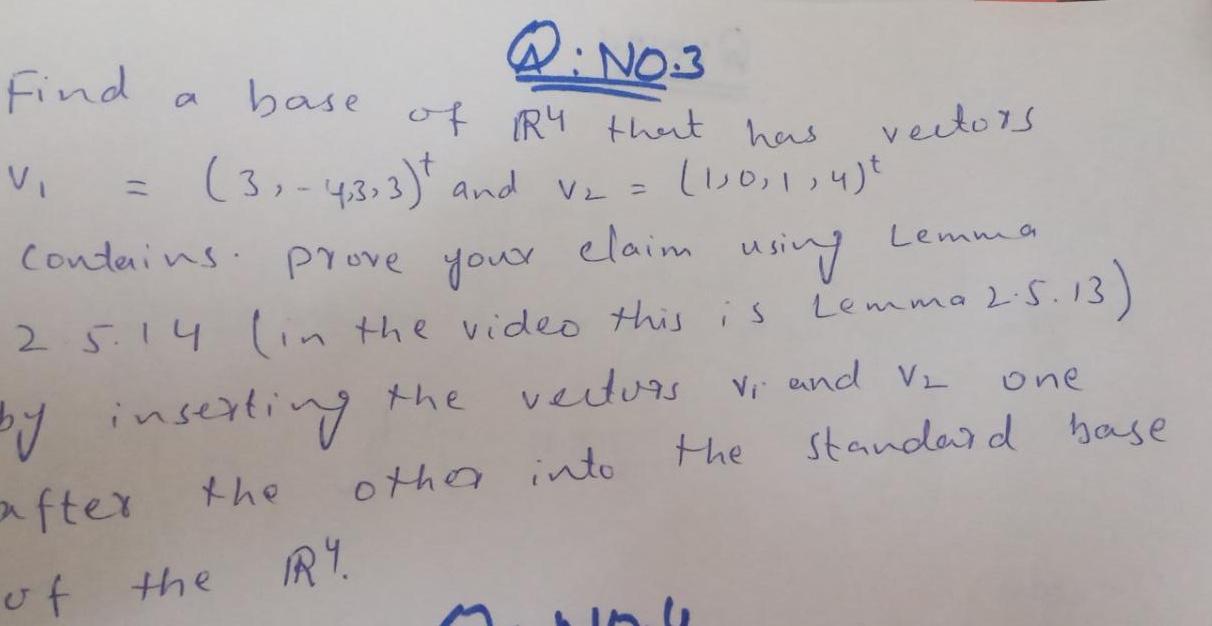 Q: NO.3
Find a base of ℝ4 that has vectors
v1 = (3, -4,3,3)^t and v2 = (1,0,1,4)^t
contains. prove your claim using Lemma
2.5.14 (in the video this is Lemma 2.5.13)
by inserting the vectors v1 and v2 one
after the other into the standard base
of the ℝ4.